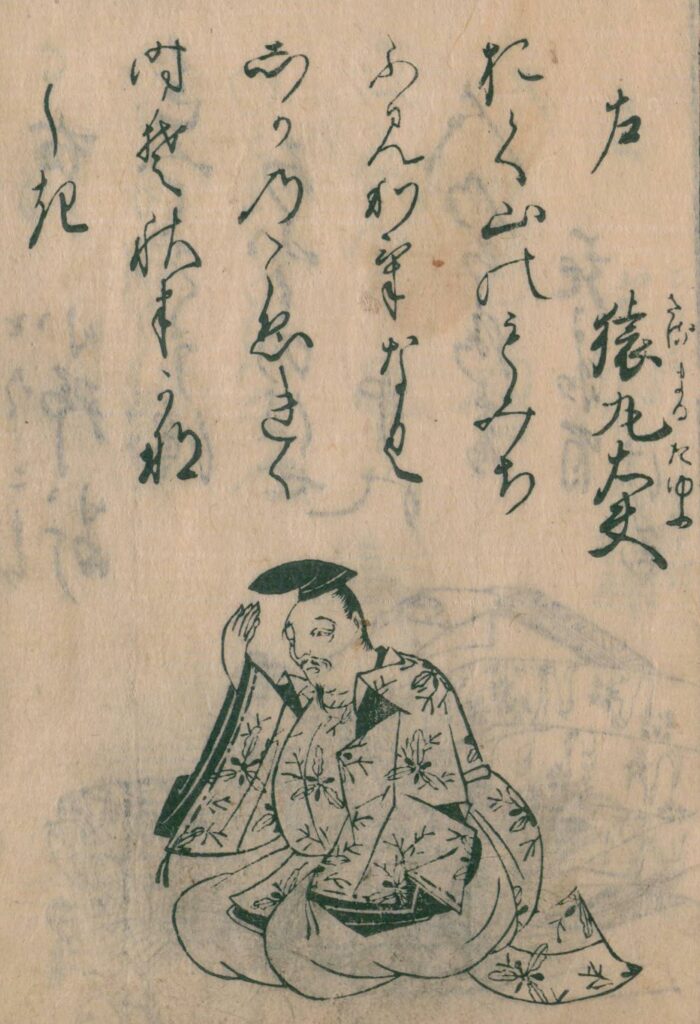 左
猿丸大夫
さるまるたゆふ
おく山にもみち
ふ見わけなく
しかのこゑきく
時そ秋はかな
しき